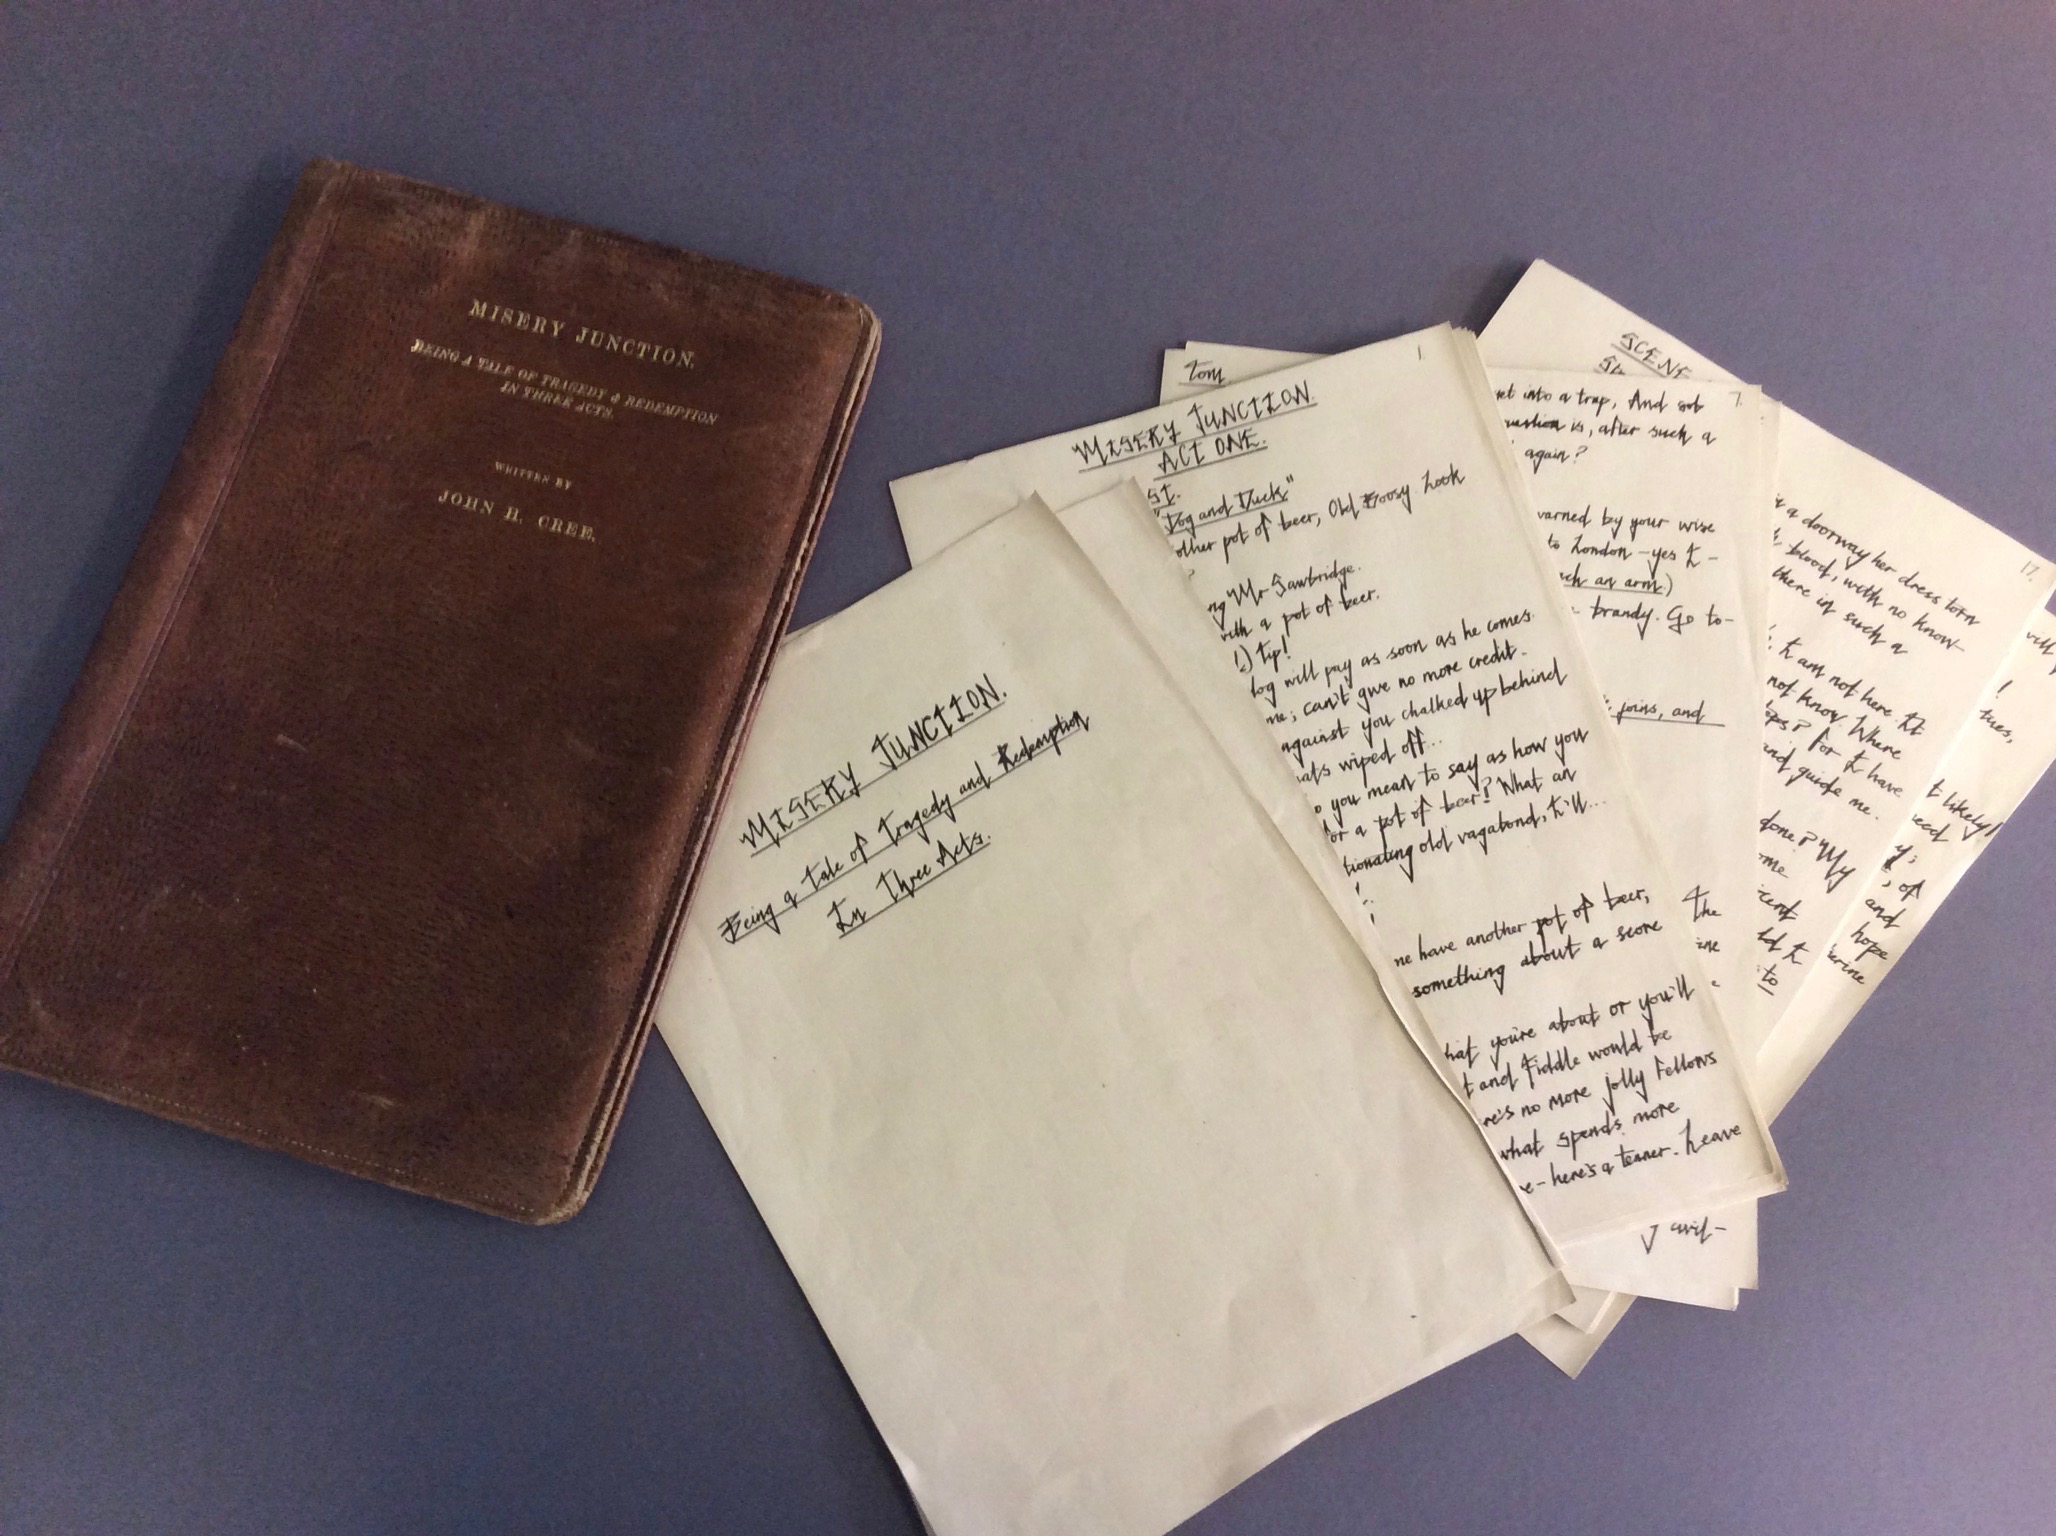 MISERY JUNCTION.
BEING A TALE OF TRAGEDY & REDEMPTION
IN THREE ACTS.
WRITTEN BY
JOHN H. CREE.
MISERY JUNCTION.
Being a Tale of Tragedy and Redemption
In Three Acts.
1
MISERY JUNCTION.
ACT ONE.
"Dog and Duck"
other pot of beer, Old Boosy. Look
?
Mr Sawbridge.
with a pot of beer.
!) Tip!
will pay as soon as he comes.
me; can't give no more credit.
against you chalked up behind
wiped off...
you mean to say as how you
for a pot of beer? What an
old vagabond, I'll...
!
me have another pot of beer,
something about a score
hat you're about or you'll
t and Fiddle would be
re's no more jolly Fellows
what spends more
e - here's a tenner. Leave
Tom
7.
into a trap, And
is, after such a
again?
warned by your wise
to London - yes I -
ach an arm)
brandy. Go to-
joins, and
The
ine
SCENE
17.
a doorway her dress torn
blood, with no know-
there in such a
: I am not here. It
not know. Where
? For I have
and guide me.
done? My
ome
I
to
will
!
tues,
t likely!
eed
y;
, of
and
hope